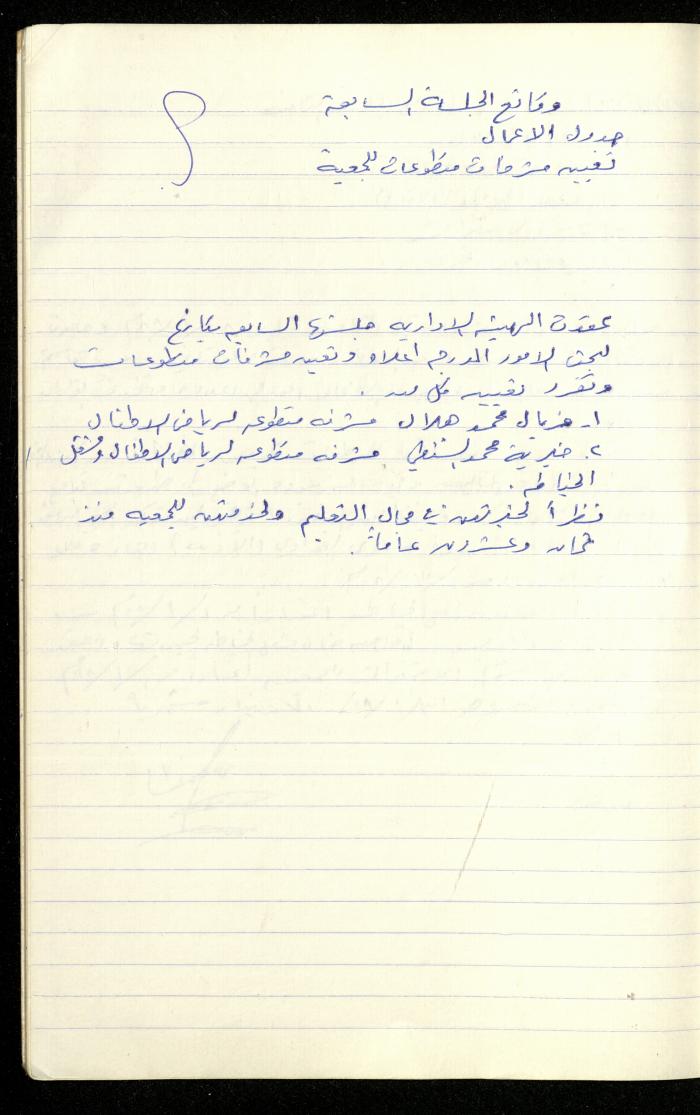 وقائع الجلسة السابعة
جدول الاعمال
تعيين مشرفات متطوعات للجمعية
عقدت الهيئة الادارية جلستها السابعه بتاريخ
لبحث الامور المدرجه اعلاه وتعيين مشرفات متطوعات
وتقرر تعيين كل من .
١. فريال محمد هلال مشرفه متطوعه لرياض الاطفال
٢. خيرية محمد الشنطي مشرفه متطوعه لرياض الاطفال ومشغل /
الخياطه .
نظراً لخبرتهن في مجال التعليم ولخدمتهن للجمعيه منذ
ثمان وعشرون عاماً .